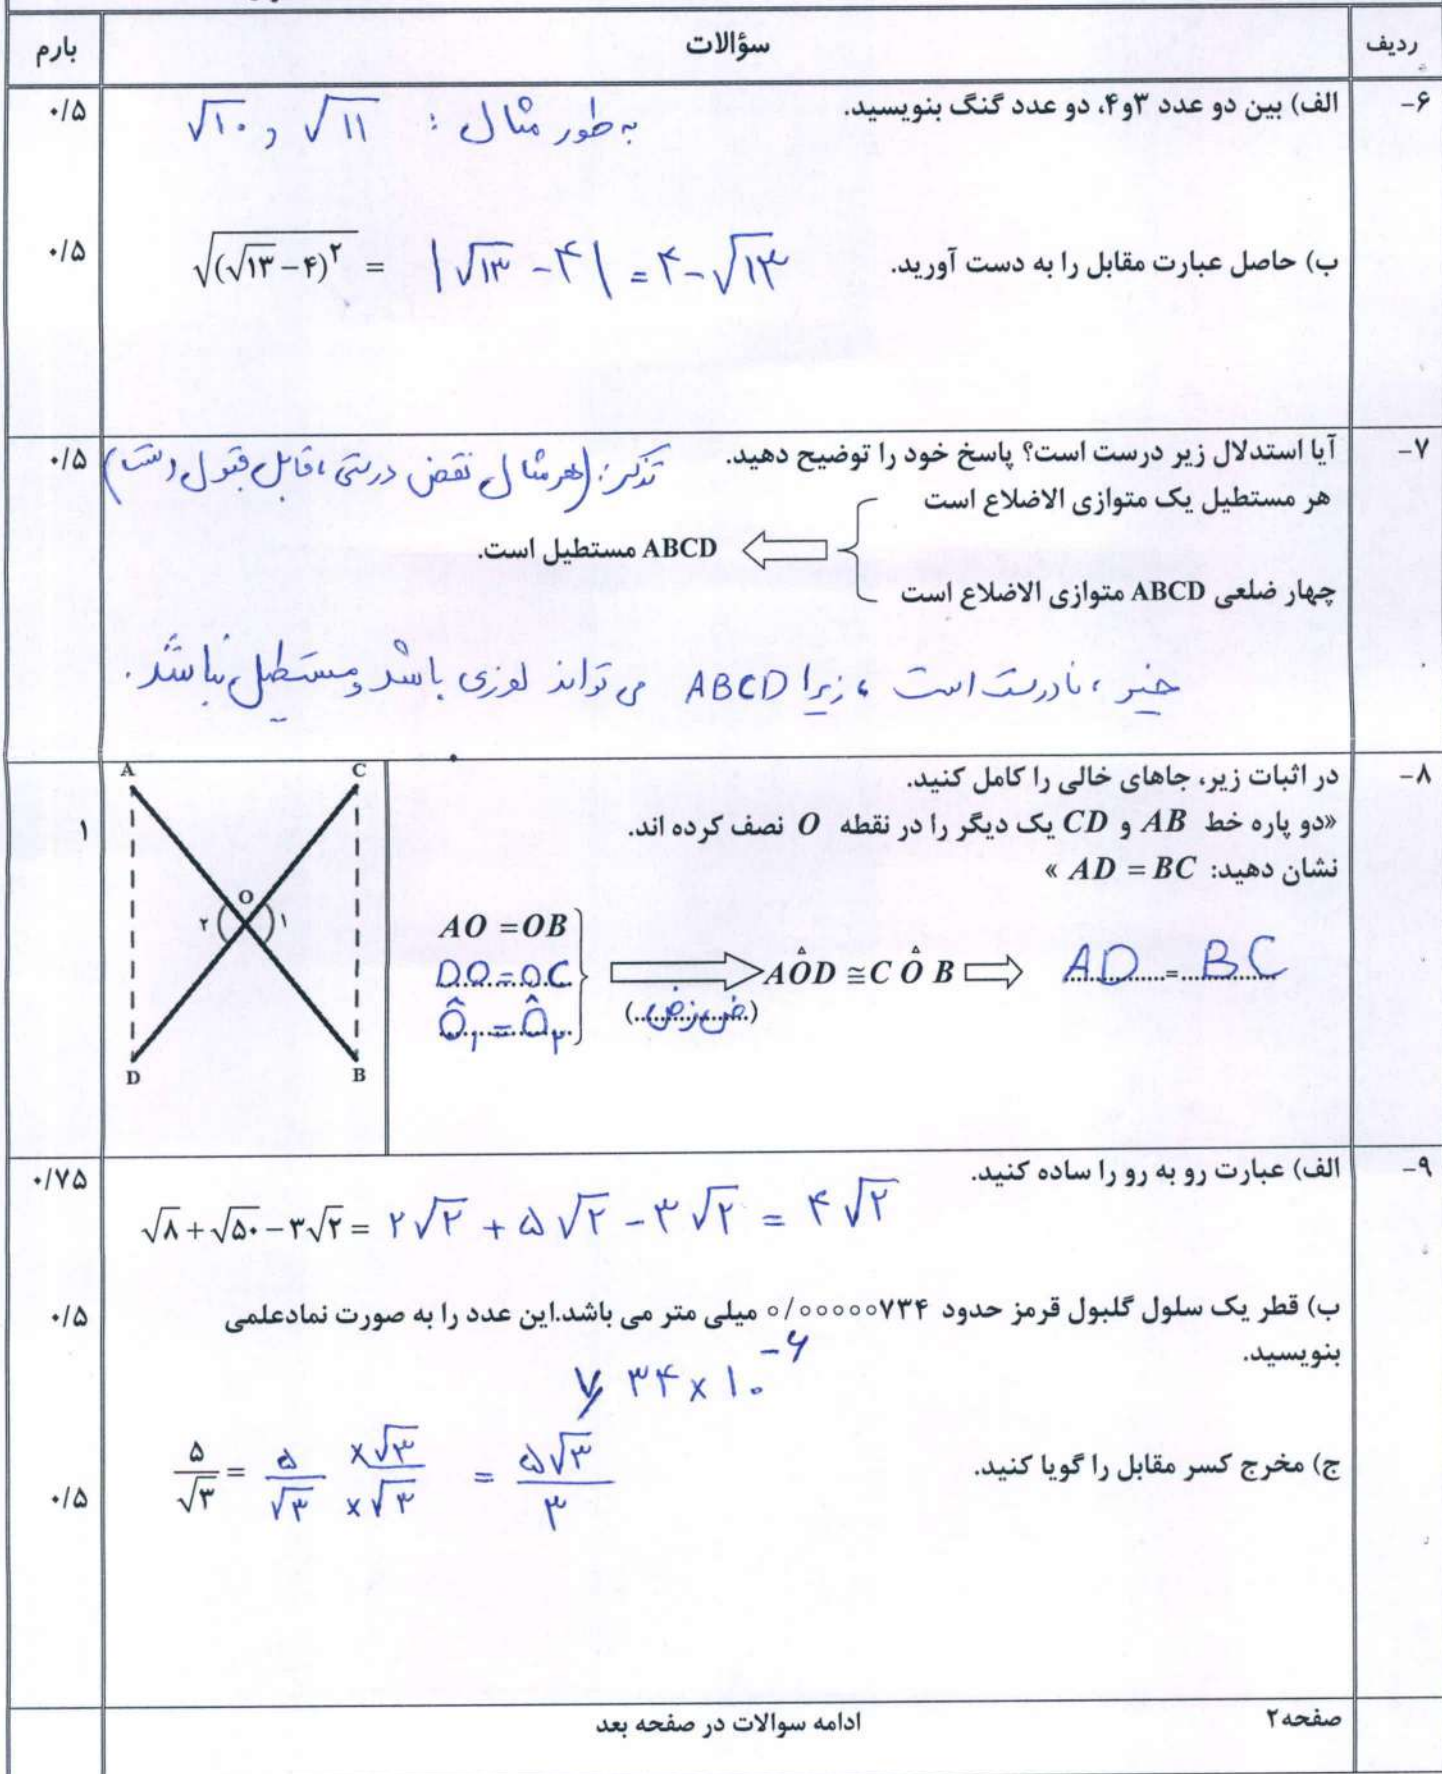 ردیف
سؤالات
بارم
۶-
الف) بین دو عدد ۳و۴، دو عدد گنگ بنویسید.
به طور مثال : √۱۱ و √۱۰
۰/۵
ب) حاصل عبارت مقابل را به دست آورید.
√((√۱۳-۴)^۲) = |√۱۳ -۴| = ۴-√۱۳
۰/۵
۷-
آیا استدلال زیر درست است؟ پاسخ خود را توضیح دهید.
تذکر: (هر مثال نقض درستی، قابل قبول است)
۰/۵
هر مستطیل یک متوازی الاضلاع است
ABCD مستطیل است.
چهار ضلعی ABCD متوازی الاضلاع است
خیر، نادرست است، زیرا ABCD می تواند لوزی باشد و مستطیل نباشد.
۸-
در اثبات زیر، جاهای خالی را کامل کنید.
۱
«دو پاره خط AB و CD یک دیگر را در نقطه O نصف کرده اند.
نشان دهید: AD = BC »
A C
O
۲ ۱
D B
AO = OB
DO = OC
Ô۱ = Ô۲
(ض ز ض)
AÔD ≅ CÔB
AD = BC
۹-
الف) عبارت رو به رو را ساده کنید.
۰/۷۵
√۸+√۵۰-۳√۲ = ۲√۲ + ۵√۲ - ۳√۲ = ۴√۲
ب) قطر یک سلول گلبول قرمز حدود ۰/۰۰۰۰۰۷۳۴ میلی متر می باشد.این عدد را به صورت نمادعلمی
۰/۵
بنویسید.
۷/۳۴ × ۱۰^-۶
ج) مخرج کسر مقابل را گویا کنید.
۵/√۳ = ۵/√۳ ×√۳/×√۳ = ۵√۳/۳
۰/۵
صفحه۲
ادامه سوالات در صفحه بعد